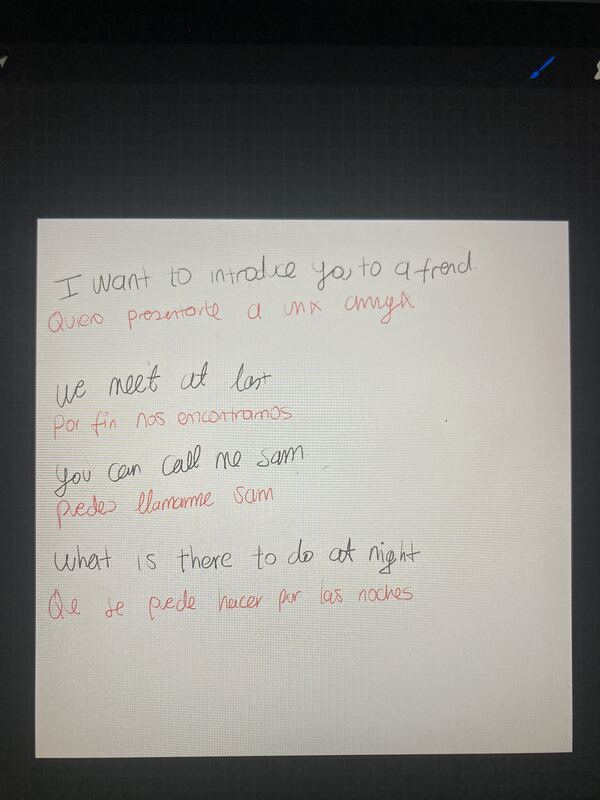 I want to introduce you to a frend.
Quiero presentarte a unx amigx
we meet at last
Por fin nos encontramos
you can call me sam
puedes llamarme sam
what is there to do at night
Que se puede hacer por las noches